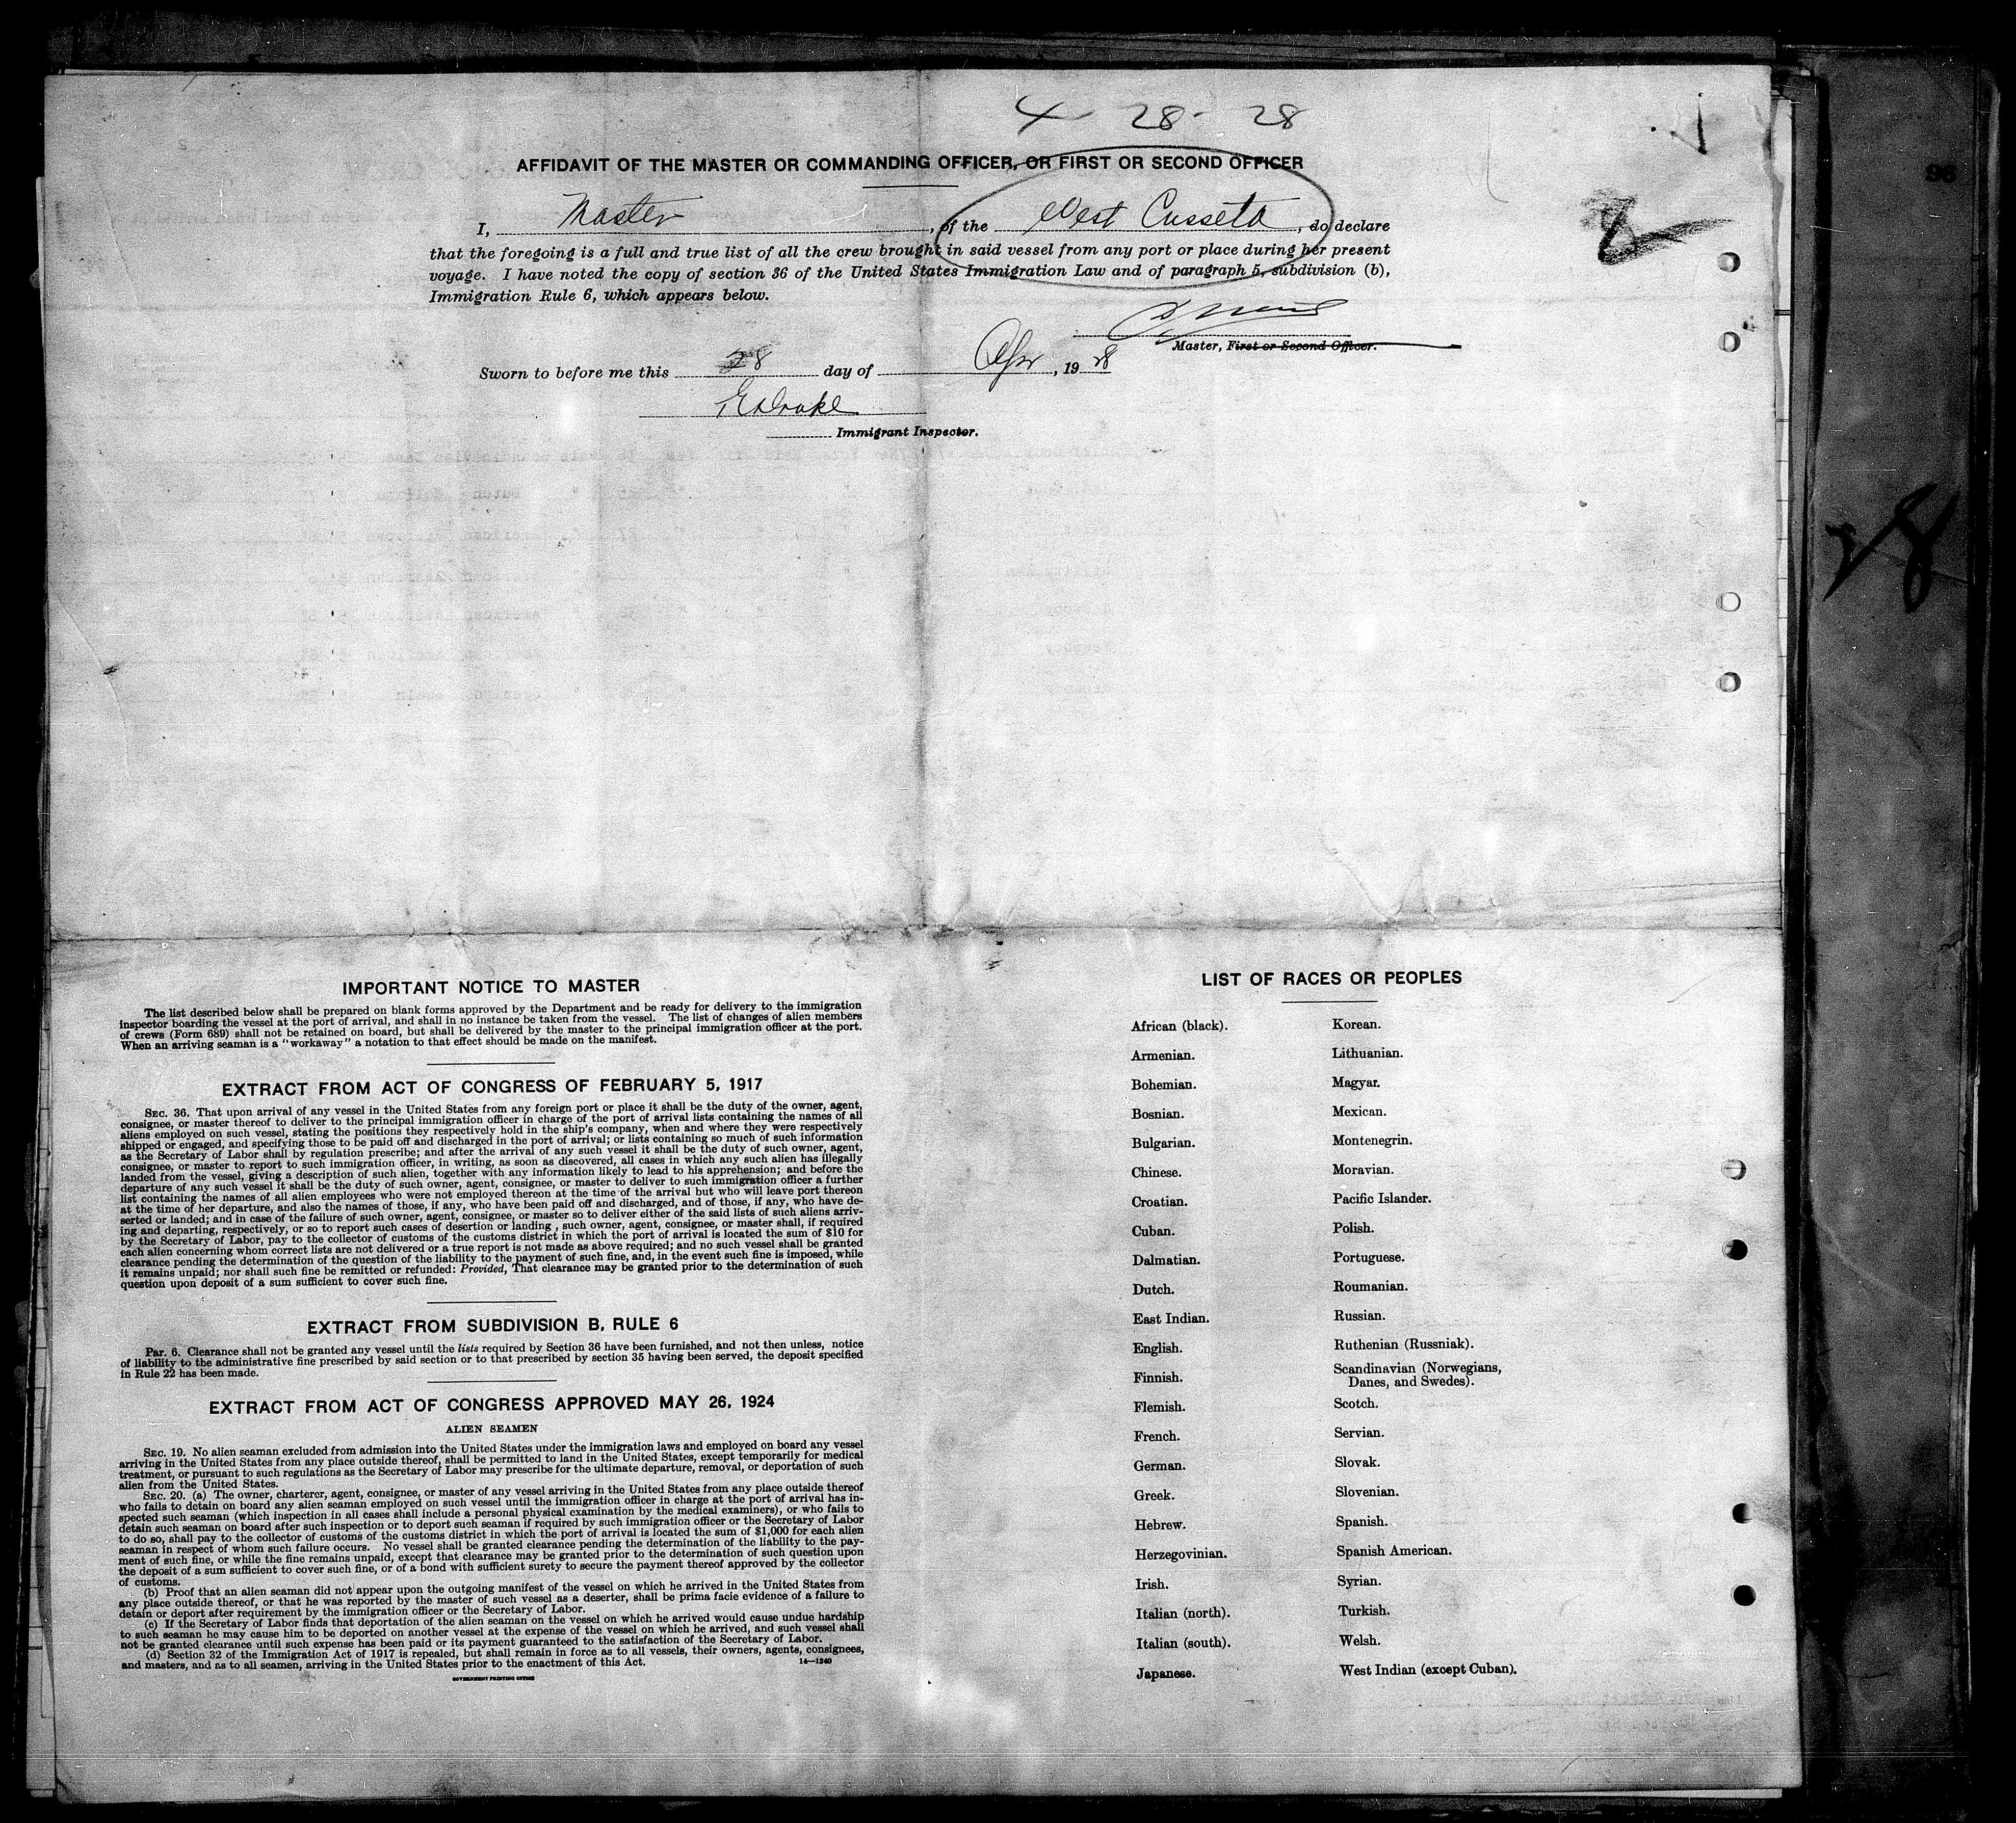 4 28 - 28
AFFIDAVIT OF THE MASTER OR COMMANDING OFFICER, OR FIRST OR SECOND OFFICER
I, Master, of the West Cusseta, do declare
that the foregoing is a full and true list of all the crew brought in said vessel from any port or place during her present
voyage. I have noted the copy of section 36 of the United States Immigration Law and of paragraph 5, subdivision (b),
Immigration Rule 6, which appears below.
Master, First or Second Officer.
Sworn to before me this 28 day of Apr, 1928
Immigrant Inspector.
IMPORTANT NOTICE TO MASTER
The list described below shall be prepared on blank forms approved by the Department and be ready for delivery to the immigration
inspector boarding the vessel at the port of arrival, and shall in no instance be taken from the vessel. The list of changes of alien members
of crews (Form 689) shall not be retained on board, but shall be delivered by the master to the principal immigration officer at the port.
When an arriving seaman is a "workaway" a notation to that effect should be made on the manifest.
EXTRACT FROM ACT OF CONGRESS OF FEBRUARY 5, 1917
SEC. 36. That upon arrival of any vessel in the United States from any foreign port or place it shall be the duty of the owner, agent,
consignee, or master thereof to deliver to the principal immigration officer in charge of the port of arrival lists containing the names of all
aliens employed on such vessel, stating the positions they respectively hold in the ship's company, when and where they were respectively
shipped or engaged, and specifying those to be paid off and discharged in the port of arrival; or lists containing so much of such information
as the Secretary of Labor shall by regulation prescribe; and after the arrival of any such vessel it shall be the duty of such owner, agent,
consignee, or master to report to such immigration officer, in writing, as soon as discovered, all cases in which any such alien has illegally
landed from the vessel, giving a description of such alien, together with any information likely to lead to his apprehension; and before the
departure of any such vessel it shall be the duty of such owner, agent, consignee, or master to deliver to such immigration officer a further
list containing the names of all alien employees who were not employed thereon at the time of the arrival but who will leave port thereon
at the time of her departure, and also the names of those, if any, who have been paid off and discharged, and of those, if any, who have de-
serted or landed; and in case of the failure of such owner, agent, consignee, or master so to deliver either of the said lists of such aliens arriv-
ing and departing, respectively, or so to report such cases of desertion or landing , such owner, agent, consignee, or master shall, if required
by the Secretary of Labor, pay to the collector of customs of the customs district in which the port of arrival is located the sum of $10 for
each alien concerning whom correct lists are not delivered or a true report is not made as above required; and no such vessel shall be granted
clearance pending the determination of the question of the liability to the payment of such fine, and, in the event such fine is imposed, while
it remains unpaid; nor shall such fine be remitted or refunded: Provided, That clearance may be granted prior to the determination of such
question upon deposit of a sum sufficient to cover such fine.
EXTRACT FROM SUBDIVISION B, RULE 6
Par. 6. Clearance shall not be granted any vessel until the lists required by Section 36 have been furnished, and not then unless, notice
of liability to the administrative fine prescribed by said section or to that prescribed by section 35 having been served, the deposit specified
in Rule 22 has been made.
EXTRACT FROM ACT OF CONGRESS APPROVED MAY 26, 1924
ALIEN SEAMEN
SEC. 19. No alien seaman excluded from admission into the United States under the immigration laws and employed on board any vessel
arriving in the United States from any place outside thereof, shall be permitted to land in the United States, except temporarily for medical
treatment, or pursuant to such regulations as the Secretary of Labor may prescribe for the ultimate departure, removal, or deportation of such
alien from the United States.
SEC. 20. (a) The owner, charterer, agent, consignee, or master of any vessel arriving in the United States from any place outside thereof
who fails to detain on board any alien seaman employed on such vessel until the immigration officer in charge at the port of arrival has in-
spected such seaman (which inspection in all cases shall include a personal physical examination by the medical examiners), or who fails to
detain such seaman on board after such inspection or to deport such seaman if required by such immigration officer or the Secretary of Labor
to do so, shall pay to the collector of customs of the customs district in which the port of arrival is located the sum of $1,000 for each alien
seaman in respect of whom such failure occurs. No vessel shall be granted clearance pending the determination of the liability to the pay-
ment of such fine, or while the fine remains unpaid, except that clearance may be granted prior to the determination of such question upon
the deposit of a sum sufficient to cover such fine, or of a bond with sufficient surety to secure the payment thereof approved by the collector
of customs.
(b) Proof that an alien seaman did not appear upon the outgoing manifest of the vessel on which he arrived in the United States from
any place outside thereof, or that he was reported by the master of such vessel as a deserter, shall be prima facie evidence of a failure to
detain or deport after requirement by the immigration officer or the Secretary of Labor.
(c) If the Secretary of Labor finds that deportation of the alien seaman on the vessel on which he arrived would cause undue hardship
to such seaman he may cause him to be deported on another vessel at the expense of the vessel on which he arrived, and such vessel shall
not be granted clearance until such expense has been paid or its payment guaranteed to the satisfaction of the Secretary of Labor.
(d) Section 32 of the Immigration Act of 1917 is repealed, but shall remain in force as to all vessels, their owners, agents, consignees,
and masters, and as to all seamen, arriving in the United States prior to the enactment of this Act. 14—1240
GOVERNMENT PRINTING OFFICE
LIST OF RACES OR PEOPLES
African (black). Korean.
Armenian. Lithuanian.
Bohemian. Magyar.
Bosnian. Mexican.
Bulgarian. Montenegrin.
Chinese. Moravian.
Croatian. Pacific Islander.
Cuban. Polish.
Dalmatian. Portuguese.
Dutch. Roumanian.
East Indian. Russian.
English. Ruthenian (Russniak).
Finnish. Scandinavian (Norwegians,
Danes, and Swedes).
Flemish. Scotch.
French. Servian.
German. Slovak.
Greek. Slovenian.
Hebrew. Spanish.
Herzegovinian. Spanish American.
Irish. Syrian.
Italian (north). Turkish.
Italian (south). Welsh.
Japanese. West Indian (except Cuban).